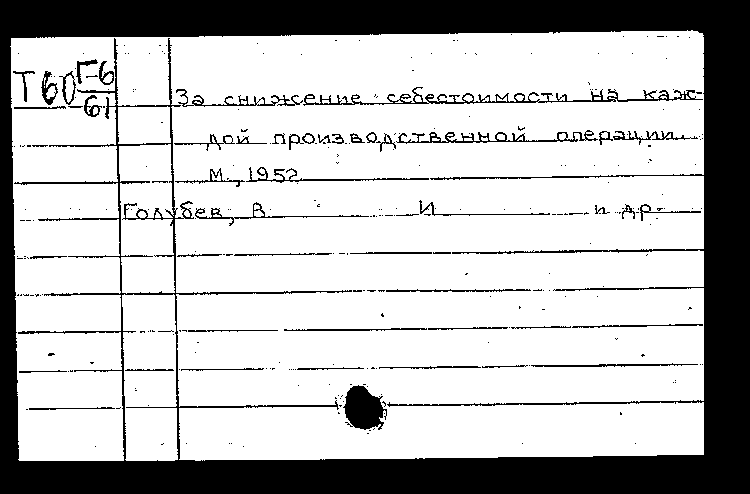 Т60 Г-6
61
За снижение себестоимости на каж-
дой производственной операции.
М., 1952
Голубев, В И и др.